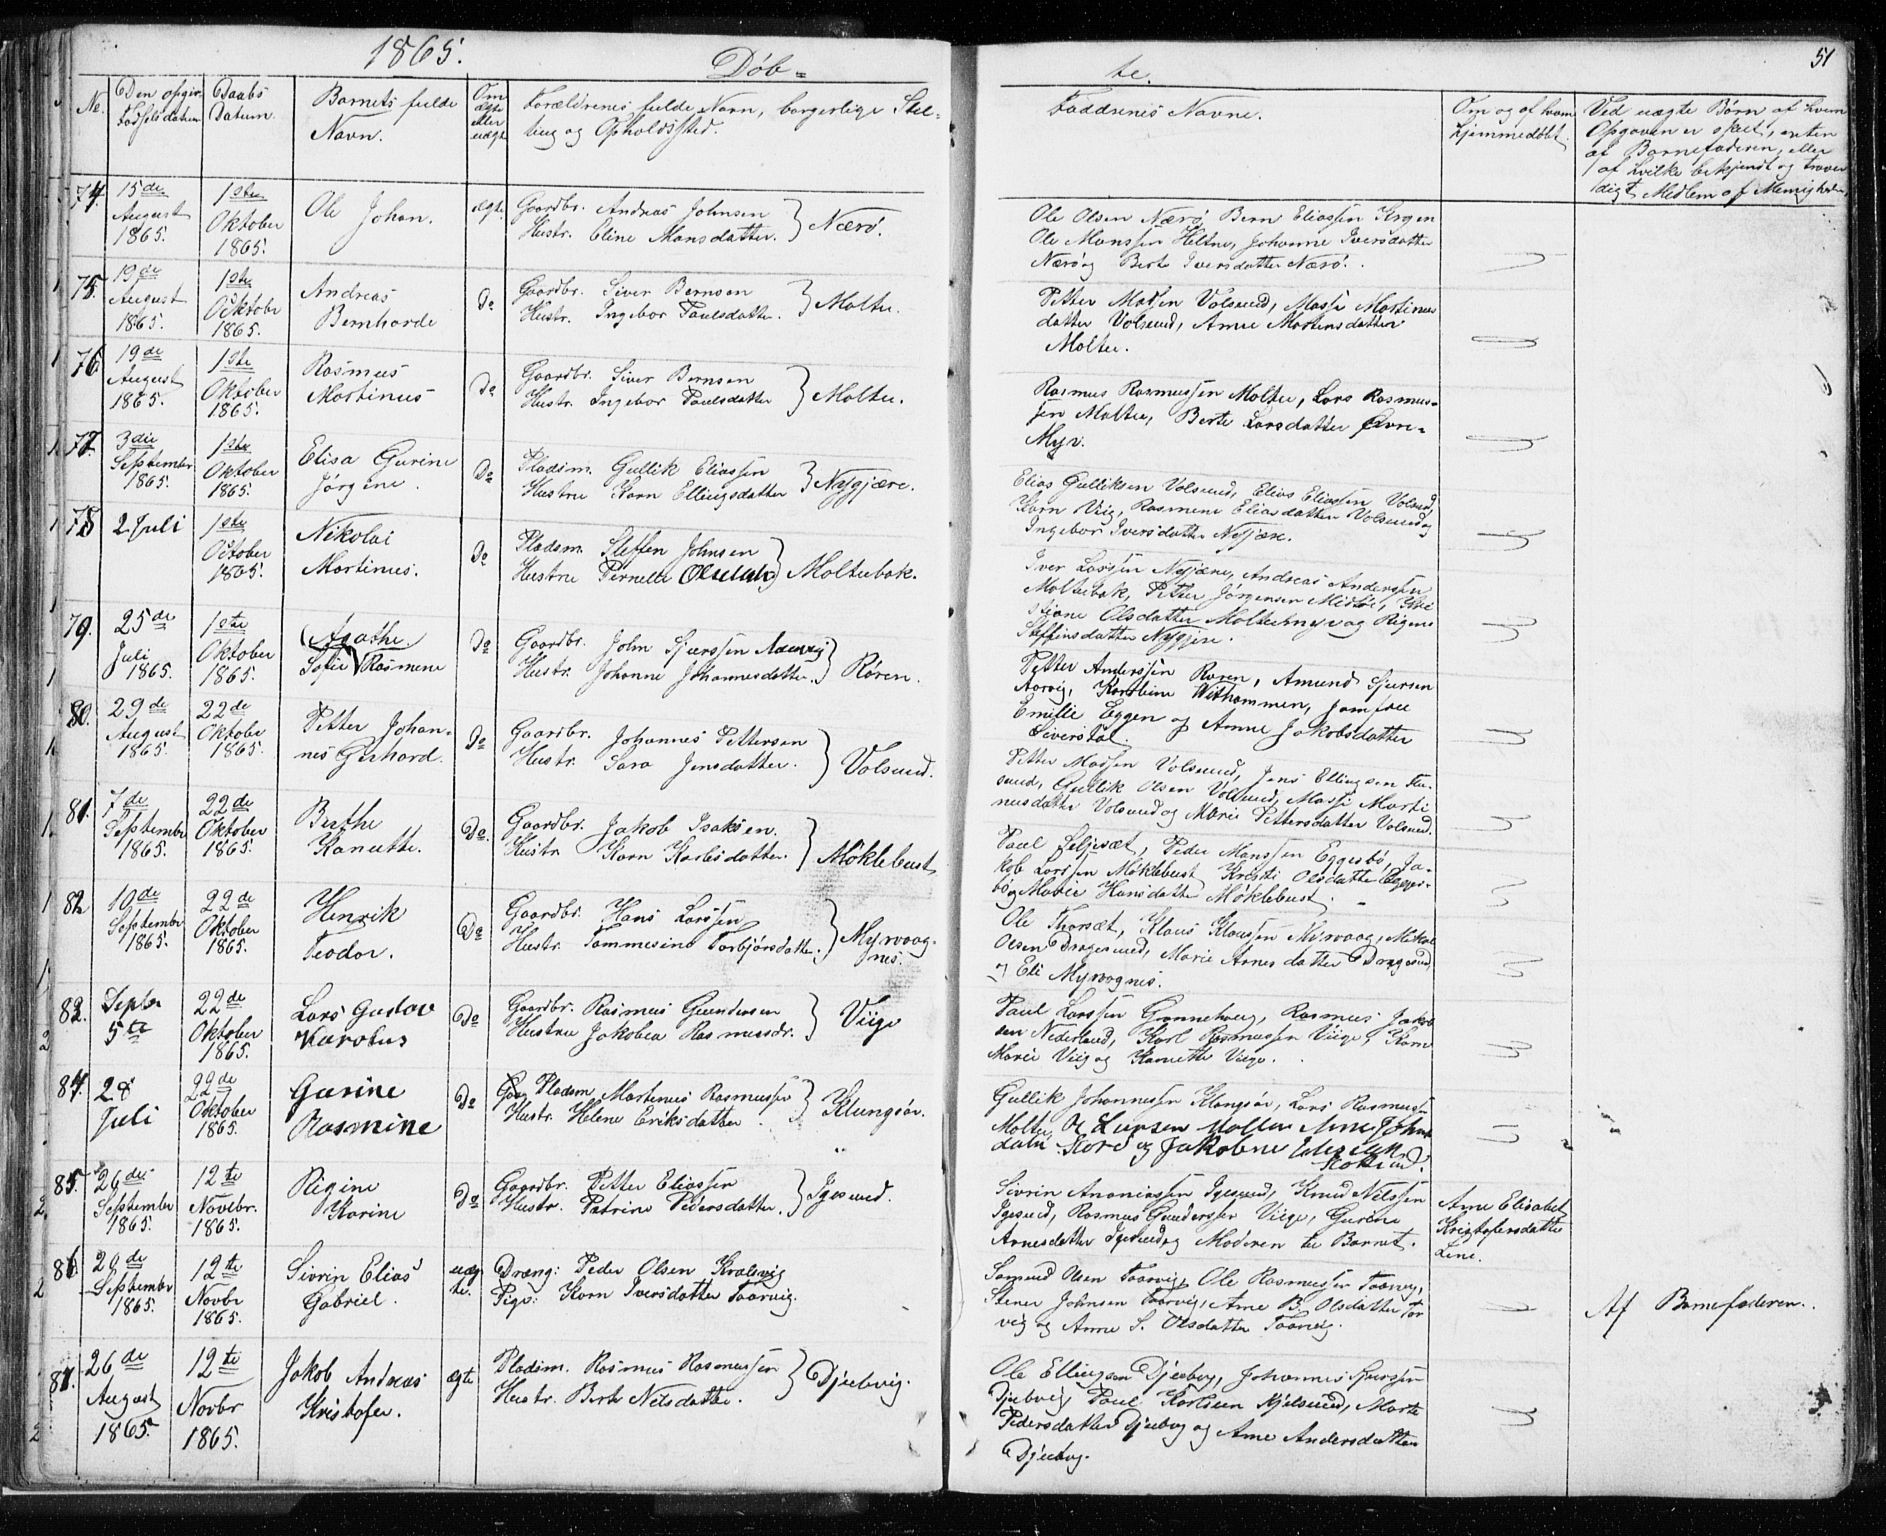 1865.
Døb-
te.
51
No.
Den opgivne Fødselsdatum
Daabs Datum.
Barnets fulde Navn.
Om ægte eller uægte
Forældrenes fulde Navn, borgerlige Stil-
ling og Opholdssted.
Faddrenes Navne.
Om og af hvem
hjemmedøbt.
Ved uægte Børn af hvem
Opgaven er skeet, enten
af Barnefaderen, eller
af hvilke bekjendt og trovær
digt Medlem af Menigheden
74. 15de August 1865. 1ste Oktober 1865. Ole Johan. ægte Gaardbr. Andreas Johnsen
Hustr. Eline Mansdatter. } Nærø.
Ole Olsen Nærø, Bern Eliassen
Ole Manssen Heltne, Johanne Iversdatter
Nærø og Berte Iversdatter Nærø.
75. 19de August 1865. 1ste Oktober 1865. Andreas Bernharde Do Gaardbr. Siver Bernsen
Hustr. Ingebor Paulsdatter. } Molter.
Petter Madsen Volsund, Massi Martinus
datter Volsund, Anne Mortensdatter
Molter.
76. 19de August 1865. 1ste Oktober 1865. Rasmus Martinus Do Gaardbr. Siver Bernsen
Hustr. Ingebor Paulsdatter } Molter.
Rasmus Rasmussen Molter, Lars Rasmus-
sen Molter, Berte Larsdatter Øvre-
Myr.
77. 3die September 1865. 1ste Oktober 1865. Elisa Gurine Jørgine. Do Pladsm. Gullik Eliassen
Hustru Karn Ellingsdatter } Nygjære.
Elias Gulliksen Volsund, Elias Eliassen Volsund,
Karn Viig, Rasmene Eliasdatter Volsund og
Ingebor Iversdatter Nygjære.
78 2 Juli 1ste October 1865. Nikolai Martinus. Do Pladsm. Steffen Johnsen
Hustru Pernelle Olsdatr } Molteebak.
Iver Larssen Nygjære, Andreas Anderssen
Moltebak, Petter Jørgensen
Olsdatter og Regine
Steffensdatter Nygjere.
79. 25de Juli 1865. 1ste Oktober 1865. (Agathe) Sofie Rasmene Do Gaardbr. John Sjurssen Aarvig
Hustr. Johanne Johannesdatter. } Røren.
Petter Anderssen Røren, Amund Sjursen
Aarvig, Karoline Withammen, Jomfrue
Emille Eggen og Anne Jakobsdatter
80. 29de August 1865. 22de Oktober 1865. Petter Johan-
nes Gerhard. Do Gaardbr. Johannes Pettersen
Hustr. Sara Jensdatter. } Volsund.
Petter Madsen Volsund, Jens Ellingsen
Gullik Olsen Volsund, Massi Marti
nusdatter Volsund og Marie Pettersdatter Volsund.
81. 7de September 1865. 22de Oktober 1865. Berthe Kanutte. Do. Gaardbr. Jakob Isaksen.
Hustr. Karn Karlsdatter. } Møklebust
Paul Seljesæt, Peder Manssen Eggesbø, Ja-
kob Larssen Møklebust, Kirsti Olsdatter Eggesbø
og Marie Hansdatter Møklebust.
82 10de September 1865. 22de Oktober 1865. Henrik Teodor. Do Gaardbr. Hans Larssen
Hustr. Tommesine Torbjørsdatter. } Myrvaag-
nes.
Ole Thorsæt, Klaus Klaussen Myrvaag, Mikal
Olsen Dragesund, Marie Arnesdatter Dragesund
og Eli Myrvagnes.
83. Septbr 5te 22de Oktober 1865. Lars Gustav Karolus Do Gaardbr. Rasmus Gundersen
Hustru Jakobea Rasmusdr. } Viige
Paul Larssen Grønnehoug, Rasmus Jakob
sen Nederland, Karl Rasmussen Viige, Karn
Marie Viig og Kanutte Viige.
84. 28 Juli 22de Oktober 1865. Gurine Rasmine Do Pladsm Martinus Rasmussen
Hustr. Helene Eriksdatter } Klungsør.
Gullik Johannessen Klungsør, Lars Rasmussen
Molter, Lursen Molter Anne Johns
datr og Jakobine
85. 26de September 1865. 12te Novebr. 1865. Regine Karine Do Gaardbr. Petter Eliassen
Hustr. Petrine Pedersdatter. } Igesund.
Sivrin Ananiassen Igesund, Knud Nilssen
Igesund, Rasmus Gunderssen Viige, Gurine
Arnesdatter Igesund og Moderen til Barnet.
Ane Elisabet
Kristofersdatter
Line.
86. 20de September 1865. 12te Novbr 1865. Sivrin Elias Gabriel. uæg
te. Dræng: Peder Olsen Kvalsvig
Pige: Karn Iversdatter Taarvig.
Samund Olsen Taarvig, Ole Rasmussen Taarvig,
Stener Johnsen Taarvig, Anne B. Olsdatter Tor
vig og Anne S. Olsdatter Taarvig.
Af Barnefaderen.
87. 26de August 1865. 12te Novbr 1865. Jakob Andreas Kristofer. ægte Pladsm. Rasmus Rasmussen
Hustr. Berte Nilsdatter. } Djubvig.
Ole Ellingsen Djubvig, Johannes Sjurssen
Djubvig, Paul Karlsen Kjelsund, Marte
Pedersdatter Djubvig og Ane Andersdatter
Djubvig.